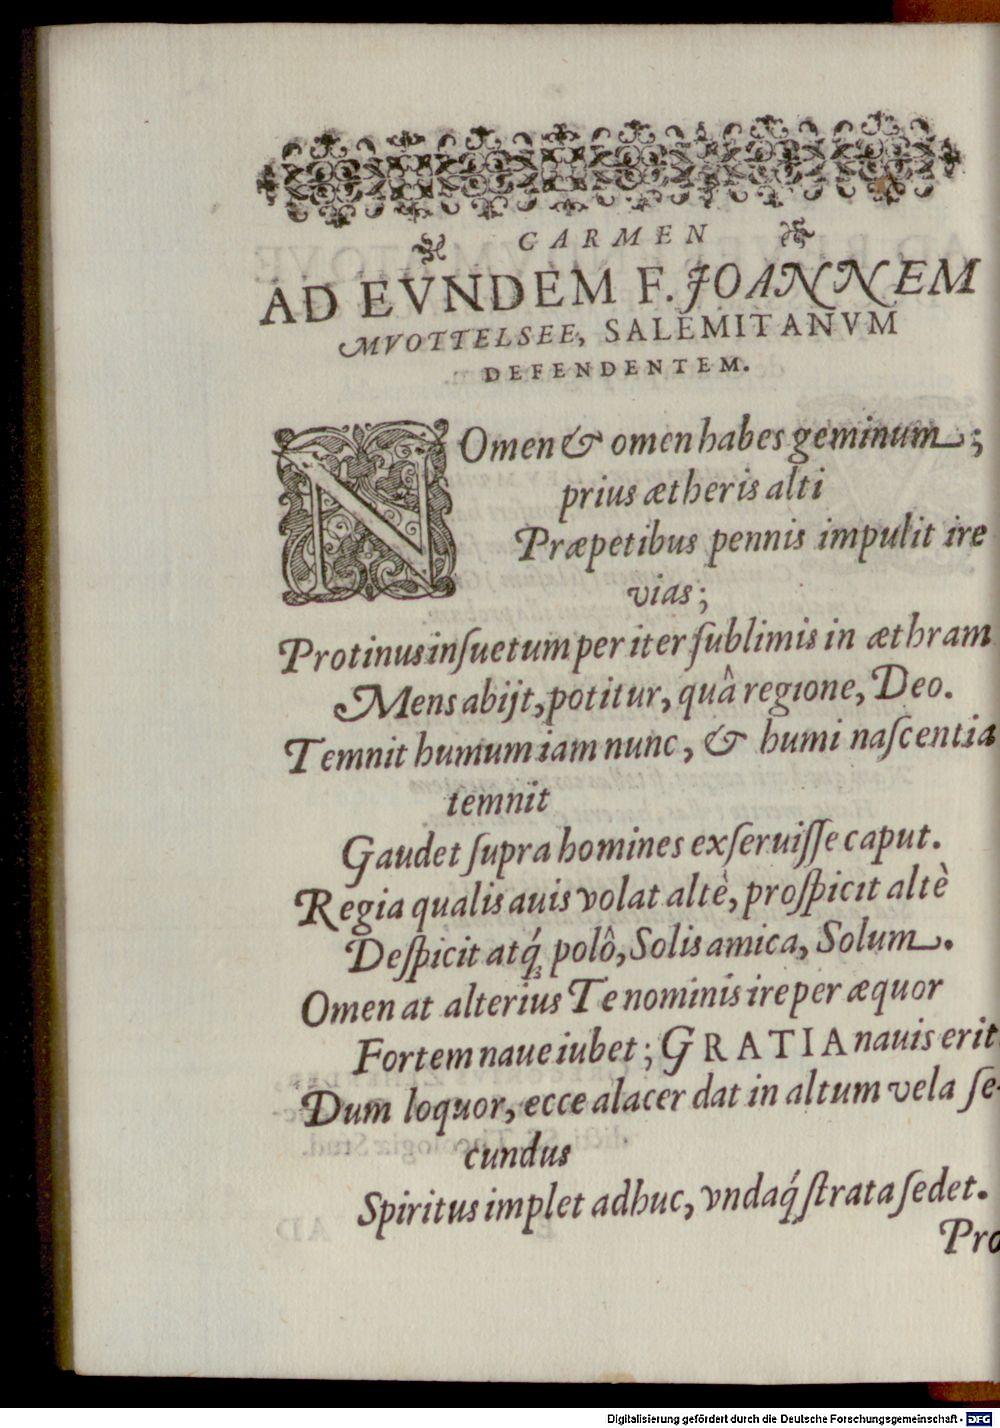 CARMEN
AD EVNDEM F. JOANNEM
MVOTTELSEE, SALEMITANVM
DEFENDENTEM.
NOmen & omen habes geminum;
prius ætheris alti
Præpetibus pennis impulit ire
vias;
Protinus inſuetum per iter ſublimis in æthram
Mens abijt, potitur, quâ regione, Deo.
Temnit humum iam nunc, & humi naſcentia
temnit
Gaudet ſupra homines exſeruiſſe caput.
Regia qualis auis volat altè, proſpicit altè
Deſpicit atq́; polô, Solis amica, Solum.
Omen at alterius Te nominis ire per æquor
Fortem naue iubet; GRATIA nauis erit
Dum loquor, ecce alacer dat in altum vela ſe-
cundus
Spiritus implet adhuc, vndaq́; ſtrata ſedet.
Pro
Digitalisierung gefördert durch die Deutsche Forschungsgemeinschaft - DFG